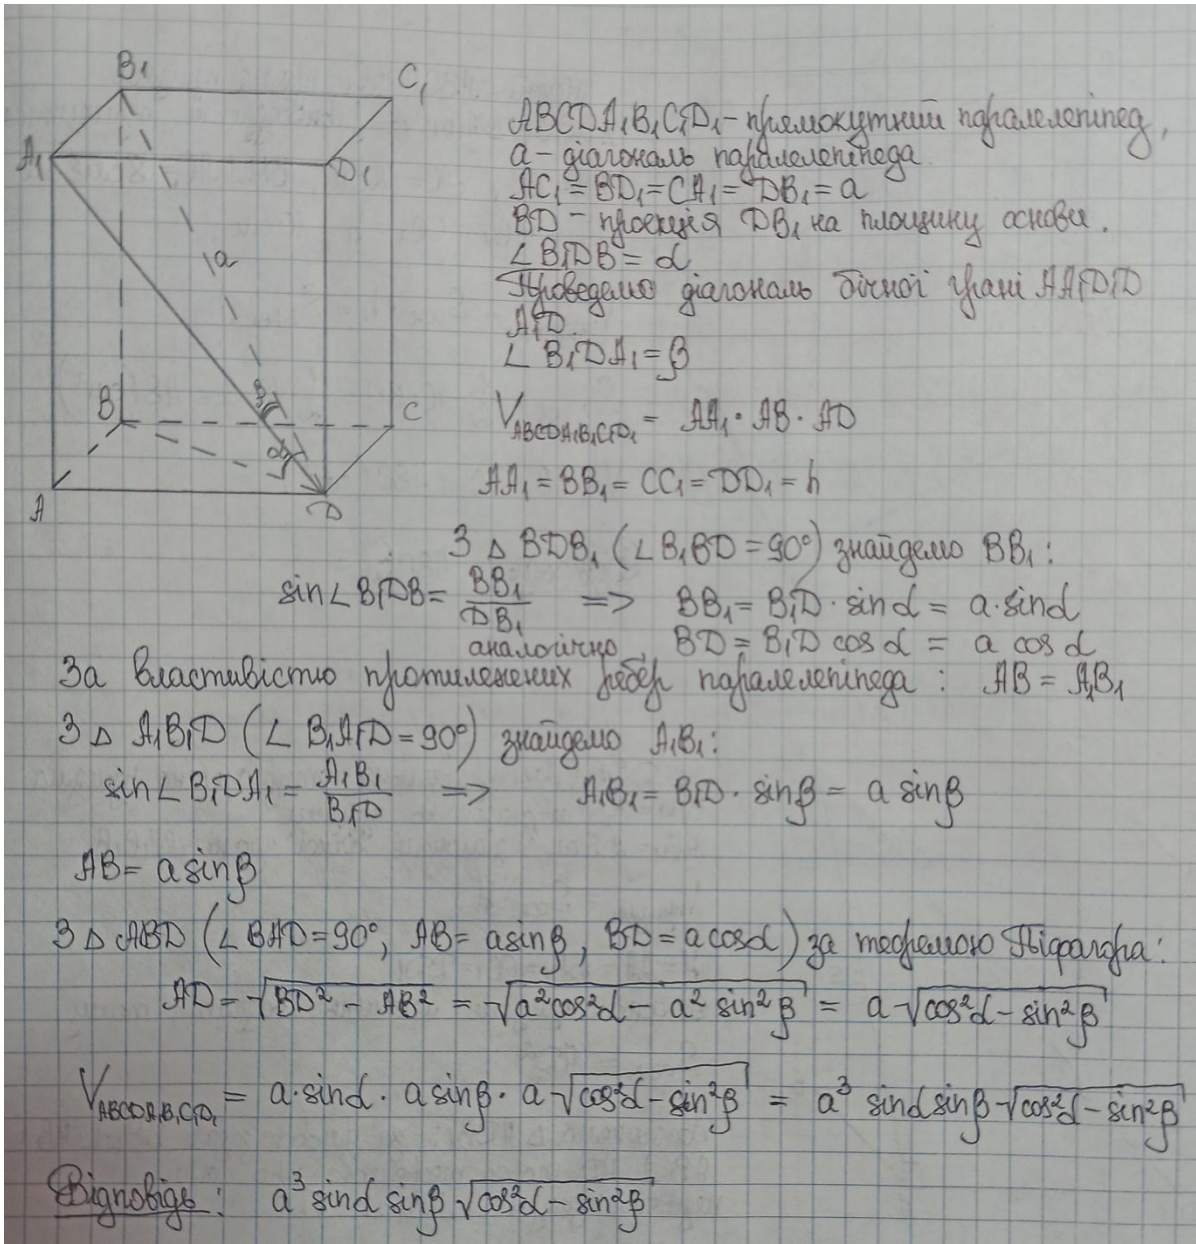 B₁
C₁
A₁
D₁
a
β
B
C
α
A
D
ABCDA₁B₁C₁D₁ - прямокутний паралелепіпед,
a - діагональ паралелепіпеда.
AC₁ = BD₁ = CA₁ = DB₁ = a
BD - проекція DB₁ на площину основи.
∠B₁DB = α
Проведемо діагональ бічної грані AA₁D₁D
A₁D.
∠B₁DA₁ = β
V_ABCDA₁B₁C₁D₁ = AA₁ · AB · AD
AA₁ = BB₁ = CC₁ = DD₁ = h
З △ BDB₁ (∠B₁BD = 90°) знайдемо BB₁:
sin∠B₁DB = BB₁/DB₁ => BB₁ = B₁D · sinα = a·sinα
аналогічно, BD = B₁D cosα = a cosα
За властивістю протилежних ребер паралелепіпеда: AB = A₁B₁
З △ A₁B₁D (∠B₁A₁D = 90°) знайдемо A₁B₁:
sin∠B₁DA₁ = A₁B₁/B₁D => A₁B₁ = B₁D · sinβ = a sinβ
AB = a sinβ
З △ ABD (∠BAD = 90°, AB = a sinβ, BD = a cosα) за теоремою Піфагора:
AD = √(BD² - AB²) = √(a²cos²α - a² sin²β) = a √(cos²α - sin²β)
V_ABCDA₁B₁C₁D₁ = a·sinα · a sinβ · a √(cos²α - sin²β) = a³ sinα sinβ √(cos²α - sin²β)
Відповідь: a³ sinα sinβ √(cos²α - sin²β)